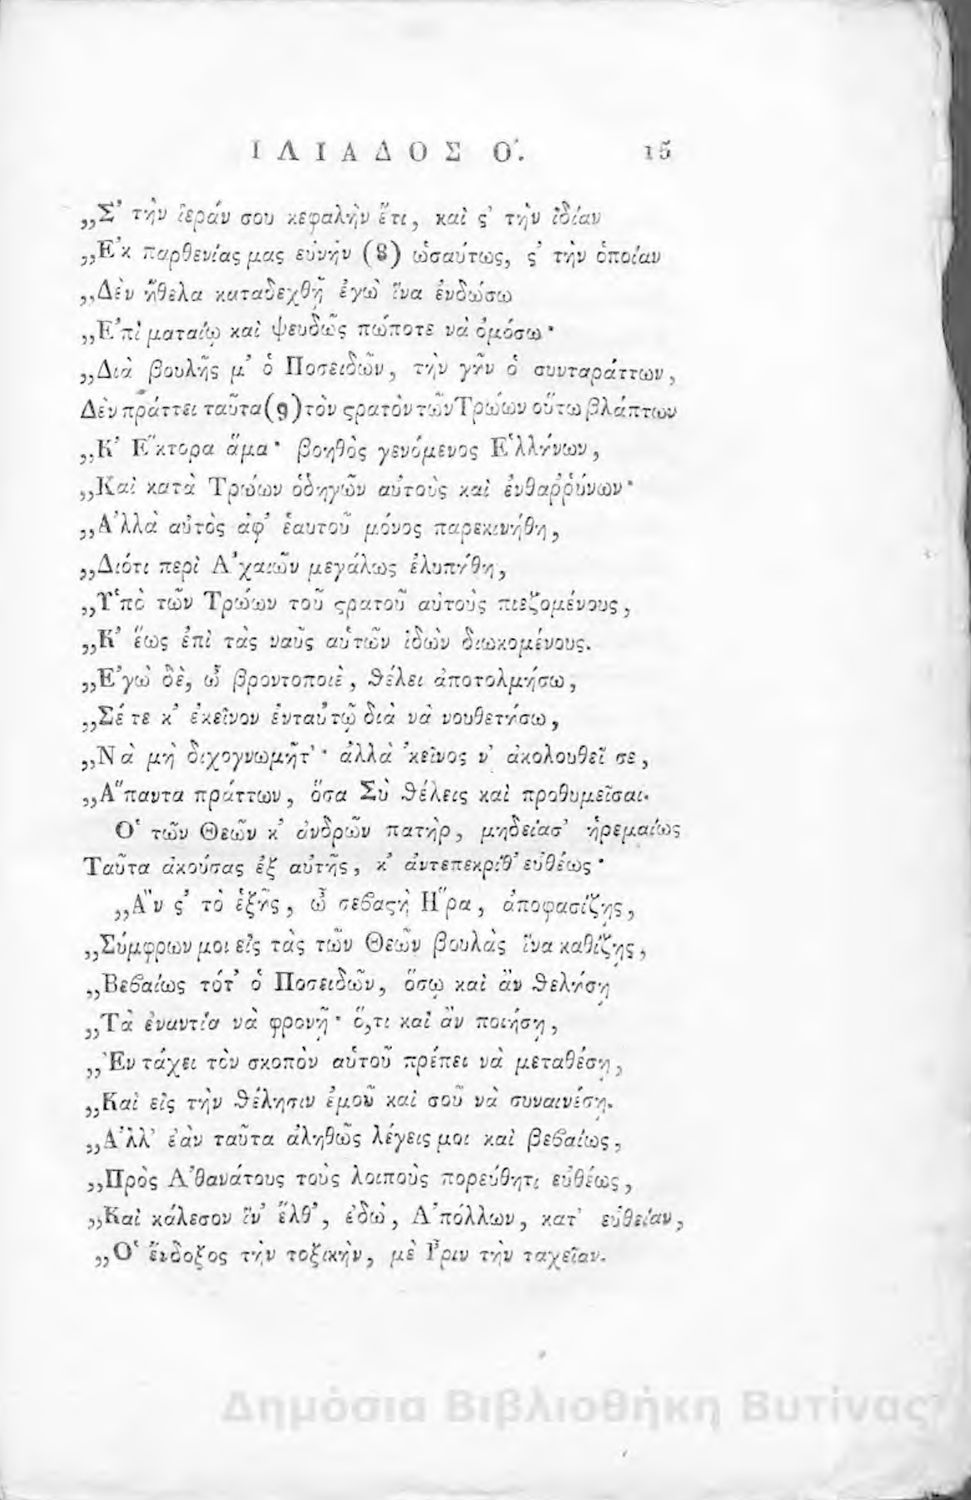 ΙΛΙΑΔΟΣ Ο΄. 15
„Σ’ τὴν ἱεράν σου κεφαλὴν ἔτι, καὶ ς’ τὴν ἰδίαν
„Ἐκ παρθενίας μας εὐνήν (8) ὡσαύτως, ς’ τὴν ὁποίαν
„Δὲν ἤθελα καταδεχθῇ ἐγὼ ἵνα ἐνδώσω
„Ἐπὶ ματαίῳ καὶ ψευδῶς πώποτε νὰ ὀμόσω·
„Διὰ βουλῆς μ’ ὁ Ποσειδῶν, τὴν γῆν ὁ συνταράττων,
Δὲν πράττει ταῦτα(9)τὸν ϛρατὸν τῶν Τρώων οὕτω βλάπτων
„Κ’ Ἕκτορα ἅμα· βοηθὸς γενόμενος Ἑλλήνων,
„Καὶ κατὰ Τρώων ὁδηγῶν αὐτοὺς καὶ ἐνθαῤῥύνων·
„Ἀλλὰ αὐτὸς ἀφ’ ἑαυτοῦ μόνος παρεκινήθη,
„Διότι περὶ Ἀχαιῶν μεγάλως ἐλυπήθη,
„Ὑπὸ τῶν Τρώων τοῦ ϛρατοῦ αὐτοὺς πιεζομένους,
„Κ’ ἕως ἐπὶ τὰς ναῦς αὑτῶν ἰδὼν διωκομένους.
„Ἐγὼ δὲ, ὦ βροντοποιὲ, θέλει ἀποτολμήσω,
„Σέ τε κ’ ἐκεῖνον ἐνταυτῷ διὰ νὰ νουθετήσω,
„Νὰ μὴ διχογνωμῆτ’· ἀλλὰ ’κεῖνος ν’ ἀκολουθεῖ σε,
„Ἅπαντα πράττων, ὅσα Σὺ θέλεις καὶ προθυμεῖσαι.
Ὁ τῶν Θεῶν κ’ ἀνδρῶν πατὴρ, μηδείασ’ ἠρεμαίως
Ταῦτα ἀκούσας ἐξ αὐτῆς, κ’ ἀντεπεκρίθ’ εὐθέως·
„Ἂν ς’ τὸ ἑξῆς, ὦ σεβαϛὴ Ἥρα, ἀποφασίζῃς,
„Σύμφρων μοι εἰς τὰς τῶν Θεῶν βουλὰς ἵνα καθίζῃς,
„Βεβαίως τότ’ ὁ Ποσειδῶν, ὅσῳ καὶ ἂν θελήσῃ
„Τὰ ἐναντία νὰ φρονῇ· ὅ,τι καὶ ἂν ποιήσῃ,
„Ἐν τάχει τὸν σκοπὸν αὑτοῦ πρέπει νὰ μεταθέσῃ,
„Καὶ εἰς τὴν θέλησιν ἐμοῦ καὶ σοῦ νὰ συναινέσῃ.
„Ἀλλ’ ἐὰν ταῦτα ἀληθῶς λέγεις μοι καὶ βεβαίως,
„Πρὸς Ἀθανάτους τοὺς λοιποὺς πορεύθητι εὐθέως,
„Καὶ κάλεσον ἵν’ ἔλθ’, ἐδὼ, Ἀπόλλων, κατ’ εὐθεῖαν,
„Ὁ ἔνδοξος τὴν τοξικὴν, μὲ Ἶριν τὴν ταχεῖαν.
Δημόσια Βιβλιοθήκη Βυτίνας